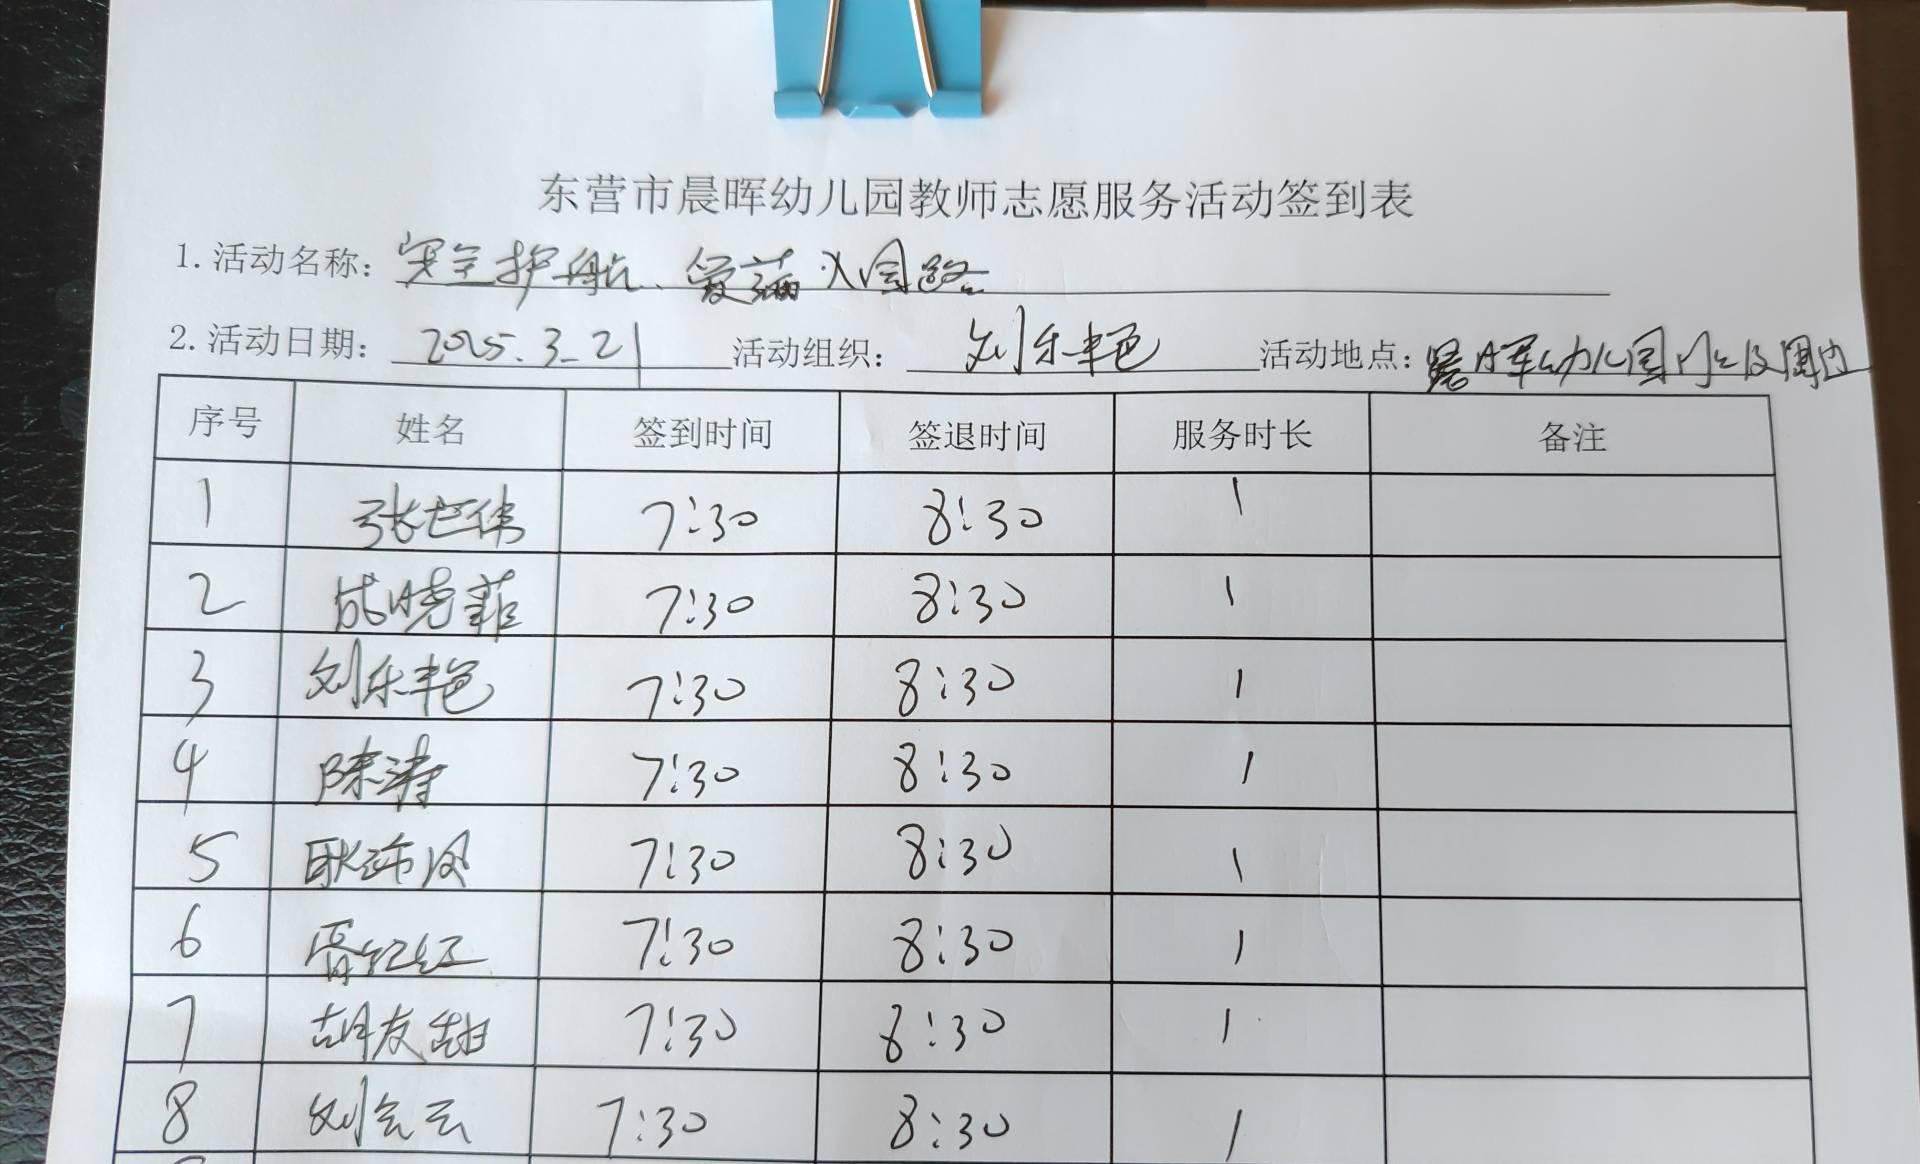 东营市晨晖幼儿园教师志愿服务活动签到表
1.活动名称：安全护航、爱满入园路
2.活动日期：2025.3.21 活动组织：刘乐艳 活动地点：晨晖幼儿园门口及周边
序号 姓名 签到时间 签退时间 服务时长 备注
1 张世伟 7:30 8:30 1
2 成晓菲 7:30 8:30 1
3 刘乐艳 7:30 8:30 1
4 陈涛 7:30 8:30 1
5 耿 凤 7:30 8:30 1
6 胥红红 7:30 8:30 1
7 胡友甜 7:30 8:30 1
8 刘云云 7:30 8:30 1